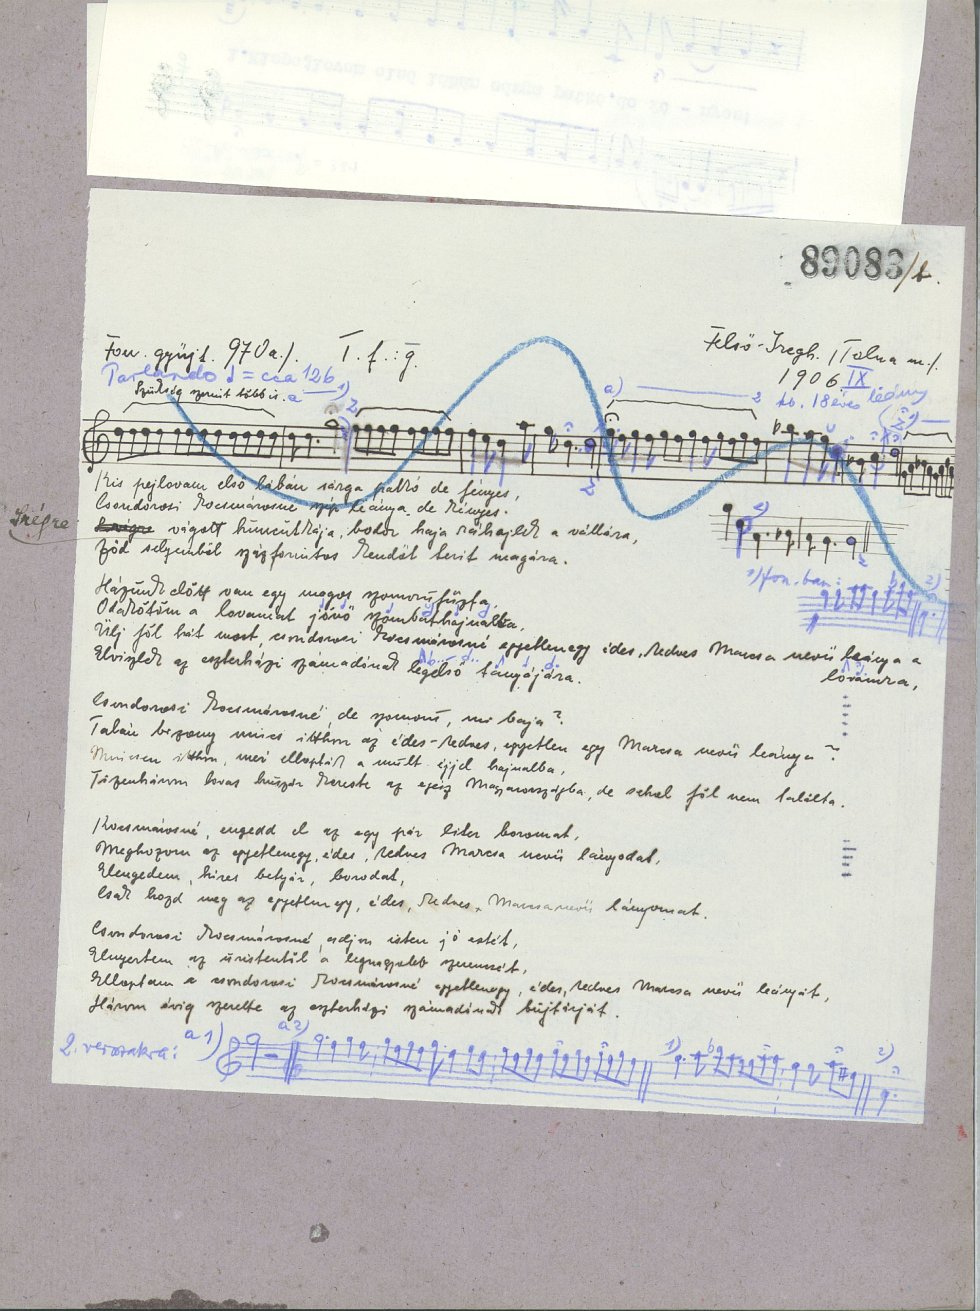 89083/b.
Fon. gyűjt. 970 a./. T. f.: g.
Felső-Iregh. /Tolna m./.
1906. IX
Parlando ♩ = cca 126
Szükség szerint több is.
kb. 18 éves leány
Kis pejlovam első lábán sárga patkó de fényes,
Csondorosi kocsmárosné szép leánya de kényes.
Szégre vágott huncutkája, bodor haja ráhajlik a vállára,
Zöd selyemből százforintos kendőt terit magára.
fon. ban:
Házunk előtt van egy magos szomorúfűzfa,
Odakötöm a lovamat jövő szombathajnalba,
Ülj föl hát most, csondorosi kocsmárosné egyetlenegy édes, kedves Marcsa nevű leánya a lovamra,
Elviszlek az eszterházi számadónak legelső tanyájára.
Csondorosi kocsmárosné, de szomorú, mi baja?
Talán bizony nincs itthon az édes-kedves, egyetlen egy Marcsa nevű leánya?
Nincsen itthon, mer ellopták a mult éjjel hajnalba,
Tizenhárom lovas huszár kereste az egész Magyarországba, de sehol föl nem találta.
Kocsmárosné, engedd el az egy pár liter boromat,
Meghozom az egyetlenegy, édes, kedves Marcsa nevű lányodat,
Elengedem, híres betyár, borodat,
Csak hozd meg az egyetlenegy, édes, kedves, Marcsa nevű lányomat.
Csondorosi kocsmárosné, adjon isten jó estét,
Elnyertem az úristentül a legnagyobb szerencsét,
Elloptam a csondorosi kocsmárosné egyetlenegy, édes, kedves Marcsa nevű leányát,
Három évig szerette az eszterházi számadónak bujtárját.
2. versszakra: a 1) a 2) 1) 2)